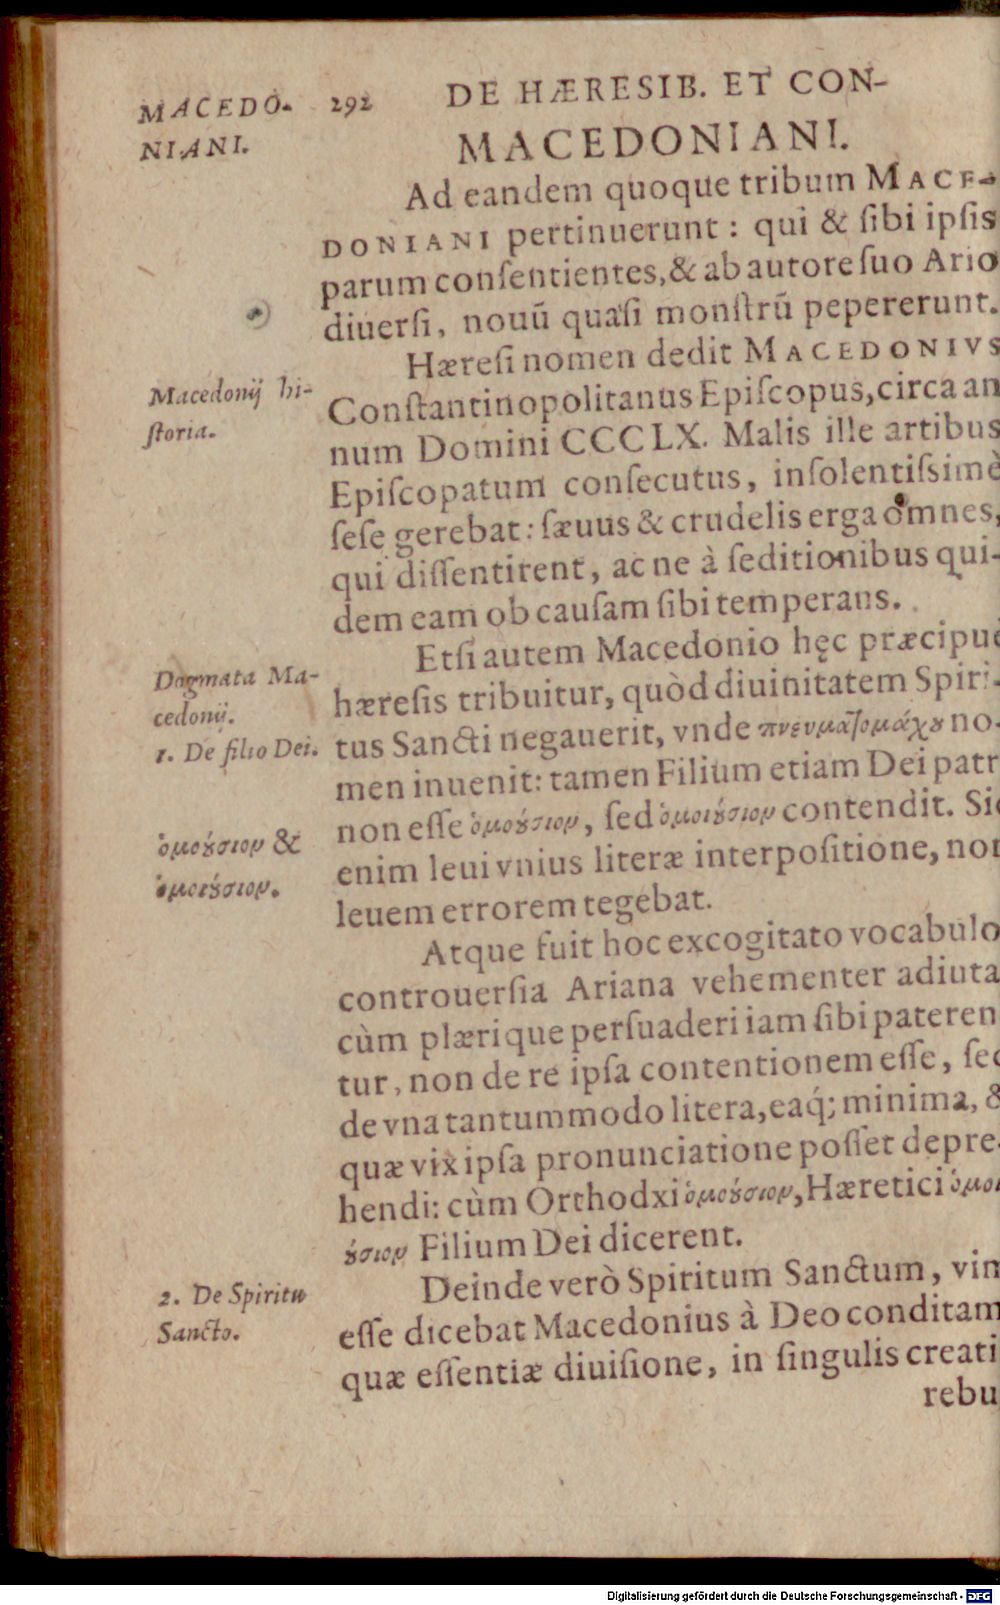 MACEDO-
NIANI.
292 DE HÆRESIB. ET CON-
MACEDONIANI.
Ad eandem quoque tribum MACE-
DONIANI pertinuerunt: qui & ſibi ipſis
parum conſentientes, & ab autore ſuo Ario
diuerſi, nouū quaſi monſtrū pepererunt.
Hæreſi nomen dedit MACEDONIVS
Macedonij hi-
ſtoria.
Conſtantinopolitanus Epiſcopus, circa an
num Domini CCCLX. Malis ille artibus
Epiſcopatum conſecutus, inſolentiſsimè
ſeſe gerebat: ſæuus & crudelis erga omnes,
qui diſſentirent, ac ne à ſeditionibus qui-
dem eam ob cauſam ſibi temperans.
Etſi autem Macedonio hęc præcipuè
Dogmata Ma-
cedonij.
1. De filio Dei.
hæreſis tribuitur, quòd diuinitatem Spiri-
tus Sancti negauerit, vnde πνευμαῖομάχȣ no-
men inuenit: tamen Filium etiam Dei patr
non eſſe ὁμοȣ́σιον, ſed ὁμοιȣ́σιον contendit. Sic
ὁμοȣ́σιον &
ὁμοιȣ́σιον.
enim leui vnius literæ interpoſitione, non
leuem errorem tegebat.
Atque fuit hoc excogitato vocabulo
controuerſia Ariana vehementer adiuta
cùm plærique perſuaderi iam ſibi pateren
tur, non de re ipſa contentionem eſſe, ſed
de vna tantummodo litera, eaq́; minima, &
quæ vix ipſa pronunciatione poſſet depre-
hendi: cùm Orthodxi ὁμοȣ́σιον, Hæretici ὁμοι
ȣ́σιον Filium Dei dicerent.
2. De Spiritu
Sancto.
Deinde verò Spiritum Sanctum, vim
eſſe dicebat Macedonius à Deo conditam
quæ eſſentiæ diuiſione, in ſingulis creati
rebu
Digitalisierung gefördert durch die Deutsche Forschungsgemeinschaft - DFG